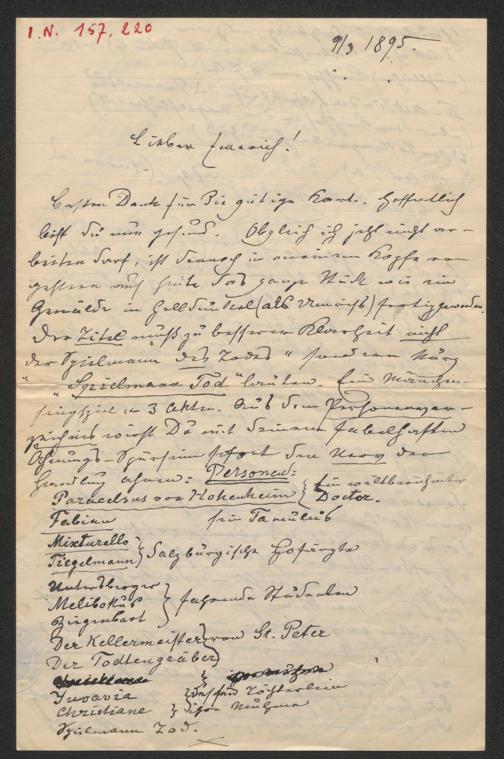 I.N. 157.220
9/3 1895.
Lieber Emerich!
Besten Dank für Die gütige Karte. Hoffentlich
bist Du nun gesund. Obgleich ich jetzt nicht ar-
beiten darf, ist dennoch in meinem Kopfe von
gestern auf heute das ganze Stück wie ein
Gemälde in Helldunkel (als Umriss) fertig geworden.
Der Titel muß zu besserer Klarheit nicht
der Spielmann des Todes" sondern kurz
"Spielmann Tod" lauten. Ein Märchen-
singspiel in 3 Akten. Aus dem Personenver-
zeichnis wirst Du mit deinem fabelhaften
Ahnungs-Spürsinn sofort den Kern der
Handlung ahnen: Personen:
Paracelsus von Hohenheim } Ein weltberühmter Doctor.
Fabian sein Famulus
Mixturello
Tiegelmann } Salzburgische Hofärzte
Untersberger
Melibokus } fahrende Studenten
Ziegenbart
Der Kellermeister } von St. Peter
Der Todtengräber
Juvavia } dessen Töchterlein
Christiane } ihre Muhme
Spielmann Tod.